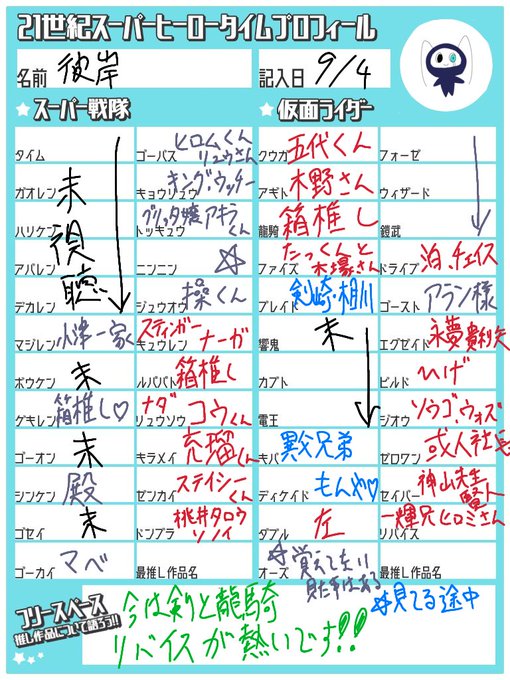 21世紀スーパーヒーロータイムプロフィール
名前 彼岸
記入日 9/4
スーパー戦隊
仮面ライダー
タイム
ガオレン
ハリケン
アバレン
デカレン
未視聴
マジレン 小津一家
ボウケン 未
ゲキレン 箱推し♡
ゴーオン 未
シンケン 殿
ゴセイ 未
ゴーカイ マベ
ゴーバス ヒロムくん リュウさん
キョウリュウ キング、ウッチー
トッキュウ グリッタ嬢 アキラくん
ニンニン ☆
ジュウオウ 操くん
キュウレン スティンガー ナーガ
ルパパト 箱推し
リュウソウ ナダ コウくん
キラメイ 充瑠くん
ゼンカイ ステイシーくん
ドンブラ 桃井タロウ ソノイ
最推し作品名
クウガ 五代くん
アギト 木野さん
龍騎 箱推し
ファイズ たっくんと木場さん
ブレイド 剣崎・相川
響鬼 未
カブト
電王
キバ 異父兄弟
ディケイド もんや♡
ダブル 左
オーズ ☆覚えてない 見た事はある
フォーゼ
ウィザード
鎧武
ドライブ 泊、チェイス
ゴースト アラン様
エグゼイド 永夢 貴利矢
ビルド ひげ
ジオウ ソウゴ、ウォズ
ゼロワン 或人社長
セイバー 神山先生 賢人
リバイス 一輝兄 ヒロミさん
最推し作品名
フリースペース
推し作品について語ろう!!
今は剣と龍騎
リバイスが熱いです!!
☆見てる途中